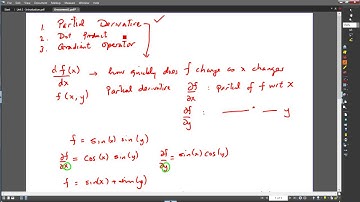 1. Partial Derivative
2. Dot Product
3. Gradient operator
d f(x)/dx → how quickly does f change as x changes
f(x,y) Partial derivative ∂f/∂x : Partial of f wrt x
∂f/∂y : — " — y
f = sin(x) sin(y)
∂f/∂x = cos(x) sin(y) ∂f/∂y = sin(x) cos(y)
f = sin(x) + sin(y)